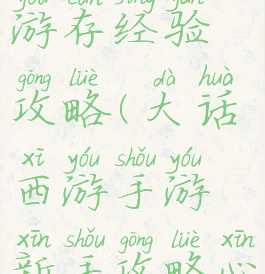 yóu cún jīng yàn
游存经验
gōng lüè dà huà
攻略(大话
xī yóu shǒu yóu
西游手游
xīn shǒu gōng lüè xīn
新手攻略心